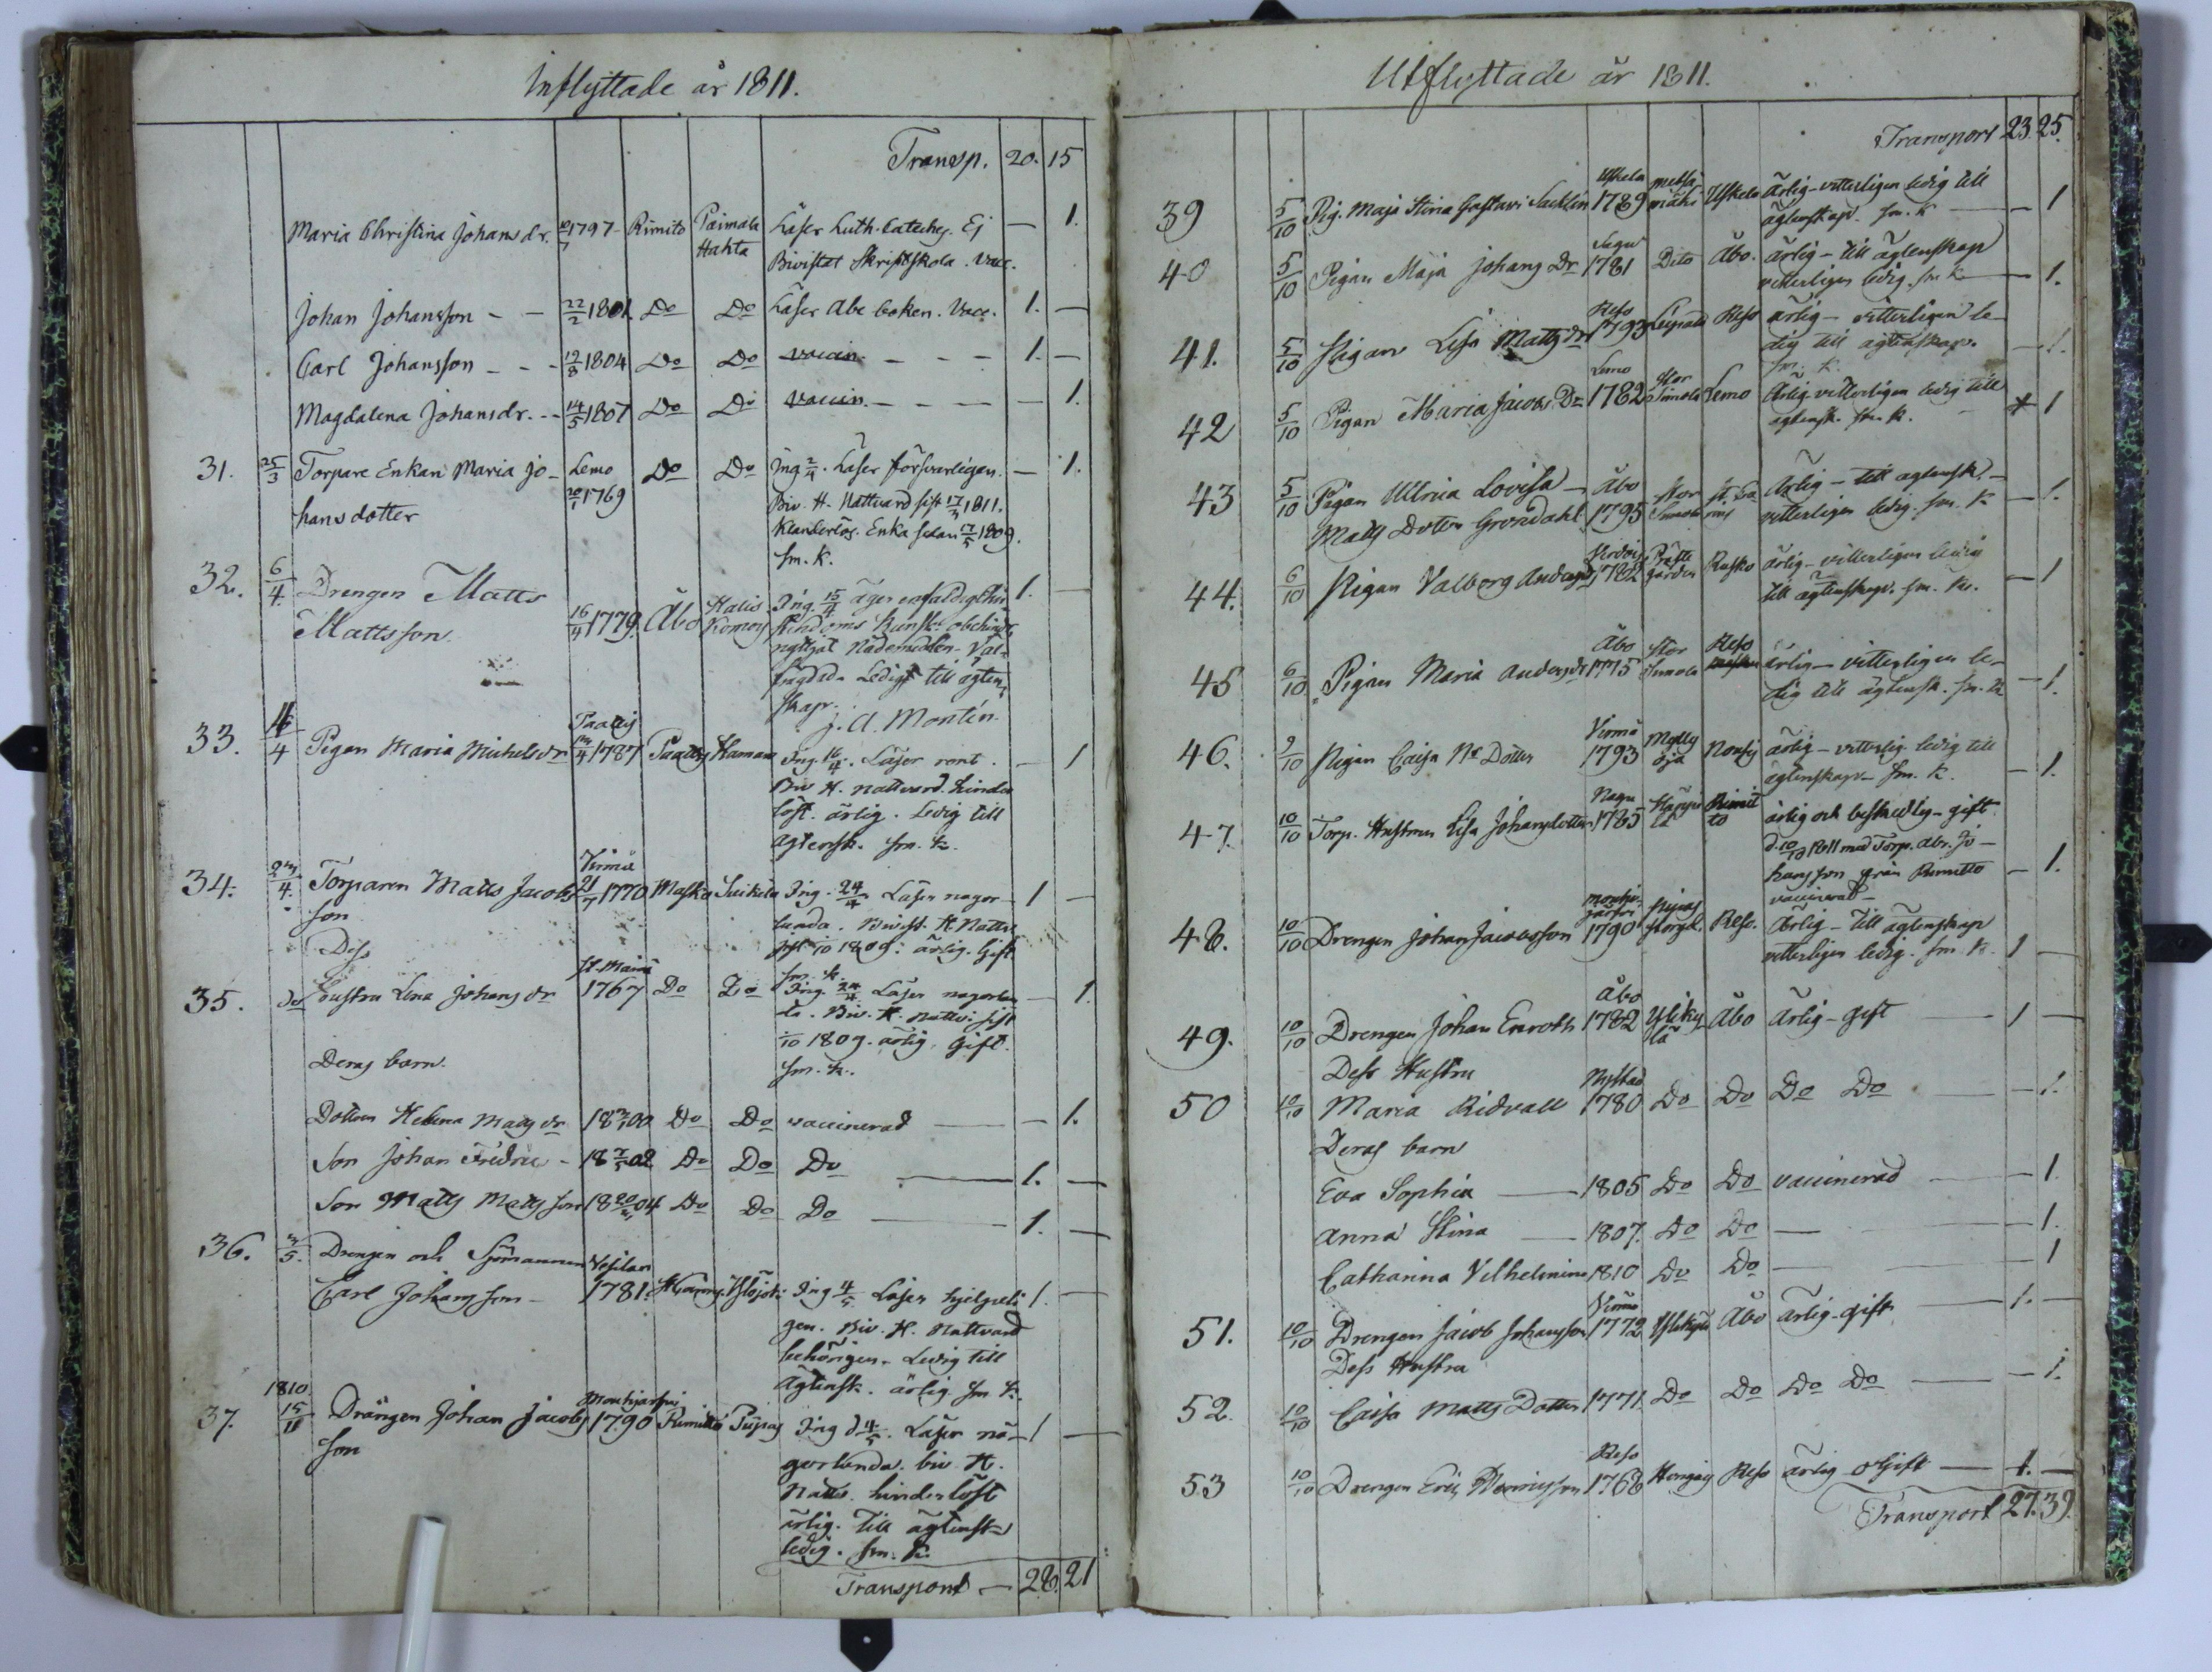 Inflyttade år 1811.
Transp. 20. 15
Maria Christina Johans dr. 1797 Rimito Paimala Läser Luth. Cateches. Ej — 1.
Hakta Bivistat Skriftskola. Vacc.
Johan Johansson - - 22/2 1801. Do Do Läser Abc boken. Vacc. 1. —
Carl Johansson - - - 19/8 1804 Do Do vaccin. - - - 1. —
Magdalena Johansdr. - - 14/5 1807 Do Do vaccin. - - - — 1.
31. 25/3 Torpare Enkan Maria Jo- Lemo Do Do Ing 2/4. Läser försvarligen. — 1.
hans dotter 1769 Biv. H. Nattvard sist 17/3 1811.
Klanderlös. Enka sedan 17/5 1809.
Sm. K.
32. 6/4 Drengen Matts 16/4 1779. Åbo Ing. 15/4 äger enfaldigt Chri- 1. —
Mattsson. stendoms kunsk:
nyttjat Nådemedlen. Väl-
frägdad. Ledig till ägten-
skap.
J. A. Montin.
33. 4 Pigan Maria Michelsdr 1787 Paattis Ing. 16/4. Läser rent. — 1
Biv H. nattvard. hinder
löst. ärlig. Ledig till
ägtensk. sm. K.
34. 4. Torparen Matts Jacobs Virmo 21/7 1770 Masko Ing. 24/4 Läser nagor- 1 —
son lunda. Bivist. H. Nattv.
sist 10 1809. ärlig. Gift
Dess sm. K.
35. do hustru Lena Johans dr St. Maria 1767 Do Do Ing. 24/4 Läser nagorlun — 1.
da. Biv. H. Nattv. sist
10 1809. ärlig. Gift.
Deras barn. sm. K.
Dottern Helena Matts dr 1800 Do Do vaccinerad — 1.
Son Johan Fredric - 18 7/5 02 Do Do Do — 1. —
Son Matts Mattsson 1804 Do Do Do — 1. —
36. 5. Drengen och Sjömannen
Carl Johansson - 1781. Ing 4/5 Läser hjelpeli 1. —
gen. Biv. H. Nattvard
behörigen. Ledig till
Ägtensk. ärlig. sm K.
1810.
37. 15/11 Drängen Johan Jacobs 1790 Rimitto Piipas Ing d 4/5. Läser nå- 1 —
son gorlunda. biv. H.
Nattv. hinderlöst
ärlig. till ägtensk
ledig. sm. K.
Transport — 28. 21
Utflyttade år 1811.
Transport 23. 25.
39 5/10 Pig. Maja Stina Gustavi Uskela 1789 Uskela Ärlig - vitterligen ledig till
ägtenskap. sm. K — — 1
40 5/10 Pigan Maja Johans Dr 1781 Dito Åbo. ärlig - till ägtenskap
vitterligen ledig. sm. K — — 1.
41. 5/10 Pigan Lisa Matts dr Reso 1793 Reso ärlig - vitterligen le-
dig till ägtenskap. — 1.
sm. K.
42 5/10 Pigan Maria Jacobs Dr Lemo 1782 Stor Lemo Ärlig vitterligen ledig till
ägtensk. sm. K. 1
43 5/10 Pigan Ulrica Lovisa - Åbo Stor Ärlig - till ägtensk. -
Matts Dotter Grondahl 1795 vitterligen ledig. sm. K — 1.
44. 6/10 Pigan Valborg Andersdr 1782 Präste gården Rusko ärlig - vitterligen ledig
till ägtenskap. sm. K. — 1
45 6/10 Pigan Maria Andersdr Åbo 1775 Stor Reso ärlig - vitterligen le-
dig till ägtensk. sm. K — 1.
46. 9/10 Pigan Caisa Ns Dotter Virmo 1793 Mylly oja Nousis ärlig - vitterlig. ledig till
ägtenskap - sm. K. — 1.
47. 10/10 Torp. Hustrun Lisa Johansdotter Nagu 1785 Rimit to ärlig och beskedlig - gift
d. 10/10 1811 med Torp. Abr. Jo-
hansson från Rimitto — 1.
vaccinerad -
48. 10/10 Drengen Johan Jacobsson 1790 Piipas Reso. Ärlig - till ägtenskap
vitterligen ledig. sm. K. 1 —
49. 10/10 Drengen Johan Enroth Åbo 1782 Ylikylä Åbo Ärlig - gift — 1 —
Dess Hustru
50 10/10 Maria Ridvall Nystad 1780 Do Do Do Do — — 1.
Deras barn
Eva Sophia — 1805 Do Do vaccinerad — — 1.
Anna Stina — 1807. Do Do — — 1.
Catharina Vilhelmina 1810 Do Do — — 1
51. 10/10 Drengen Jacob Johansson Virmo 1772 Ylikylä Åbo ärlig - gift — 1. —
Dess Hustru
52. 10/10 Caisa Matts Dotter 1771 Do Do Do Do — — 1.
53 10/10 Drengen Eric Henricsson Reso 1768 Reso ärlig o Gift — 1. —
Transport 27. 39.